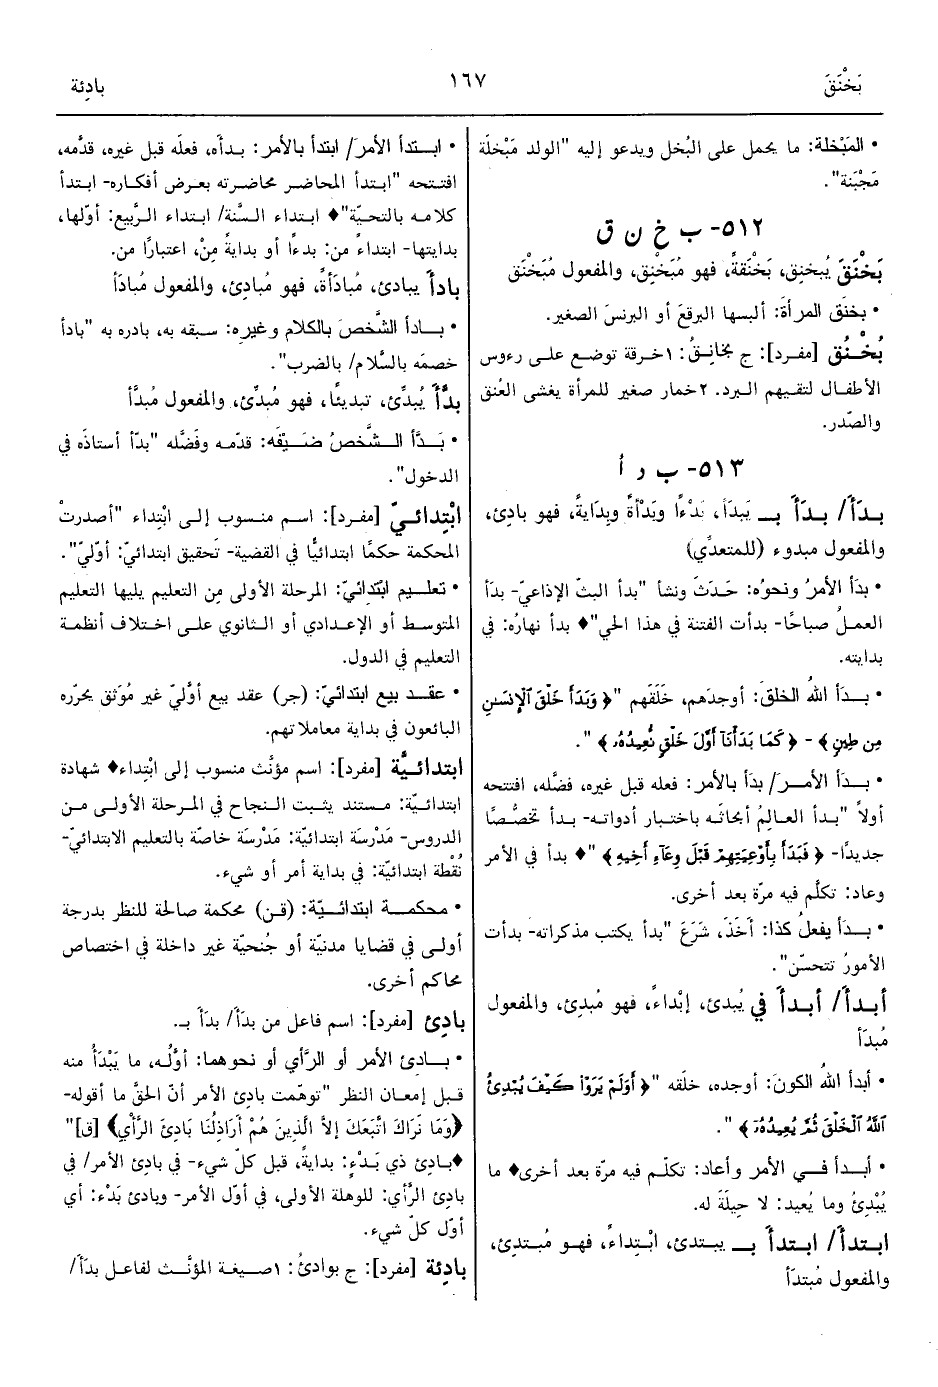 بَخْنَقَ
١٦٧
بادِئة
• المَبْخلة: ما يحمل على البُخل ويدعو إليه "الولد مَبْخلَة
مَجْبَنة".
٥١٢- ب خ ن ق
بَخْنَقَ يُبخنِق، بَخْنَقةً، فهو مُبَخْنِق، والمفعول مُبَخْنَق
• بخنَق المرأةَ: ألبسها البرقعَ أو البرنسَ الصغير.
بُخْـنُق [مفـرد]: ج بَخانِقُ: ١خرقة توضع على رءوس
الأطفال لتقيهم البرد. ٢خمار صغير للمرأة يغشى العُنق
والصّدر.
٥١٣- ب د أ
بـدَأَ/ بـدَأَ بـ يَبدَأ، بَدْءًا وبَدْأةً وبِدَايةً، فهو بادِئ،
والمفعول مبدوء (للمتعدِّي)
• بدَأ الأمرُ ونحوُه: حَدَثَ ونشأ "بدأ البثّ الإذاعيّ- بدأ
العملُ صباحًا- بدأت الفتنة في هذا الحي"♦ بدأ نهارُه: في
بدايته.
• بـدَأ اللهُ الخلقَ: أوجدَهم، خَلَقَهم "﴿ وَبَدَأَ خَلْقَ ٱلْإِنسَـٰنِ
مِن طِينٍ﴾ - ﴿ كَمَا بَدَأْنَآ أَوَّلَ خَلْقٍ نُّعِيدُهُۥ ﴾ ".
• بـدَأ الأمـرَ/ بدَأ بالأمر: فعله قبل غيره، فضَّله، افتتحه
أولاً "بـدأ العـالِمُ أبحاثَـه باختبار أدواته- بـدأ تخصُّصًا
جديدًا- ﴿ فَبَدَأَ بِأَوْعِيَتِهِمْ قَبْلَ وِعَآءِ أَخِيهِ ﴾ "♦ بدأ في الأمر
وعاد: تكلَّم فيه مرّة بعد أخرى.
• بـدَأ يفعلُ كذا: أخَذَ، شَرَعَ "بدأ يكتب مذكراته- بدأت
الأمورُ تتحسّن".
أبـدأَ/ أبـدأَ في يُبدئ، إبْداءً، فهو مُبدِئ، والمفعول
مُبدَأ
• أبدأ اللهُ الكونَ: أوجده، خلقه "﴿ أَوَلَمْ يَرَوْا۟ كَيْفَ يُبْدِئُ
ٱللَّهُ ٱلْخَلْقَ ثُمَّ يُعِيدُهُۥٓ ﴾ ".
• أبـدأ فـي الأمر وأعاد: تكلّم فيه مرّة بعد أخرى♦ ما
يُبْدِئُ وما يُعيد: لا حِيلَةَ له.
ابـتدأَ/ ابـتدأَ بـ يبـتدئ، ابْـتِداءً، فهـو مُبـتدِئ،
والمفعول مُبتدَأ
• ابـتدأ الأمرَ/ ابتدأ بالأمر: بـدأه، فعلَه قبل غيره، قدَّمه،
افتـتحه "ابـتدأ المحاضـر محاضرته بعـرض أفكـاره- ابـتدأ
كلامـه بالتحيّة"♦ ابـتداء السَّنة/ ابـتداء الرَّبيع: أوّلها،
بدايتها- ابتداءً من: بدءًا أو بدايةً مِنْ، اعتبارًا من.
بادأَ يبادئ، مُبادَأةً، فهو مُبادِئ، والمفعول مُبادَأ
• بـادأ الشَّخصَ بالكلام وغيرِه: سـبقه به، بادره به "بادأ
خصمَه بالسَّلام/ بالضرب".
بدَّأَ يُبدِّئ، تبديئًا، فهو مُبدِّئ، والمفعول مُبدَّأ
• بَـدَّأ الـشَّخصُ ضَـيْفَه: قدّمه وفَضَّله "بدّأ أستاذَه في
الدخول".
ابْتِدائيّ [مفرد]: اسم منسوب إلى ابْتِداء "أصدرتْ
المحكمة حكمًا ابتدائيًّا في القضية- تَحقيق ابتدائيّ: أوّليّ".
• تعلـيم ابْتِدائيّ: المرحلة الأولى مِن التعليم يليها التعليم
المتوسط أو الإعـدادي أو الـثانوي علـى اخـتلاف أنظمة
التعليم في الدول.
• عقـد بيع ابتدائيّ: (جر) عقد بيع أوَّليّ غير مُوَثق يحرّره
البائعون في بداية معاملاتهم.
ابتدائيَّة [مفرد]: اسم مؤنَّث منسوب إلى ابْتِداء♦ شهادة
ابتدائـيّة: مـستند يثبـت النـجاح في المـرحلة الأولى مـن
الدروس- مَدْرسة ابتدائيّة: مَدْرسَة خاصّة بالتعليم الابتدائيّ-
نُقْطة ابتدائيّة: في بداية أمر أو شيء.
• محكمـة ابتدائـيّة: (قـن) محكمة صالحة للنظر بدرجة
أولـى في قضايا مدنيّة أو جُنحيّة غير داخلة في اختصاص
محاكم أخرى.
بادِئ [مفرد]: اسم فاعل من بدَأَ/ بدَأَ بـ.
• بـادئ الأمر أو الرَّأي أو نحوهما: أوَّلُـه، ما يَبْدَأُ منه
قـبل إمعـان النظر "توهّمت بادِئ الأمر أنّ الحقَّ ما أقوله-
﴿وَمَا نَرَاكَ اتَّبَعَكَ إلاَّ الَّذِينَ هُمْ أَرَاذِلُنَا بَادِئَ الرَّأْيِ﴾ [ق]"
♦بادِئ ذي بَدْء: بدايةً، قبل كلّ شيء- في بادِئ الأمر/ في
بادِئ الرَّأي: للوهلة الأولى، في أوّل الأمر- وبادئ بَدْء: أي
أوّل كلّ شيء.
بادِئة [مفرد]: ج بوادئُ: ١صـيغة المؤنَّـث لفاعل بدَأَ/